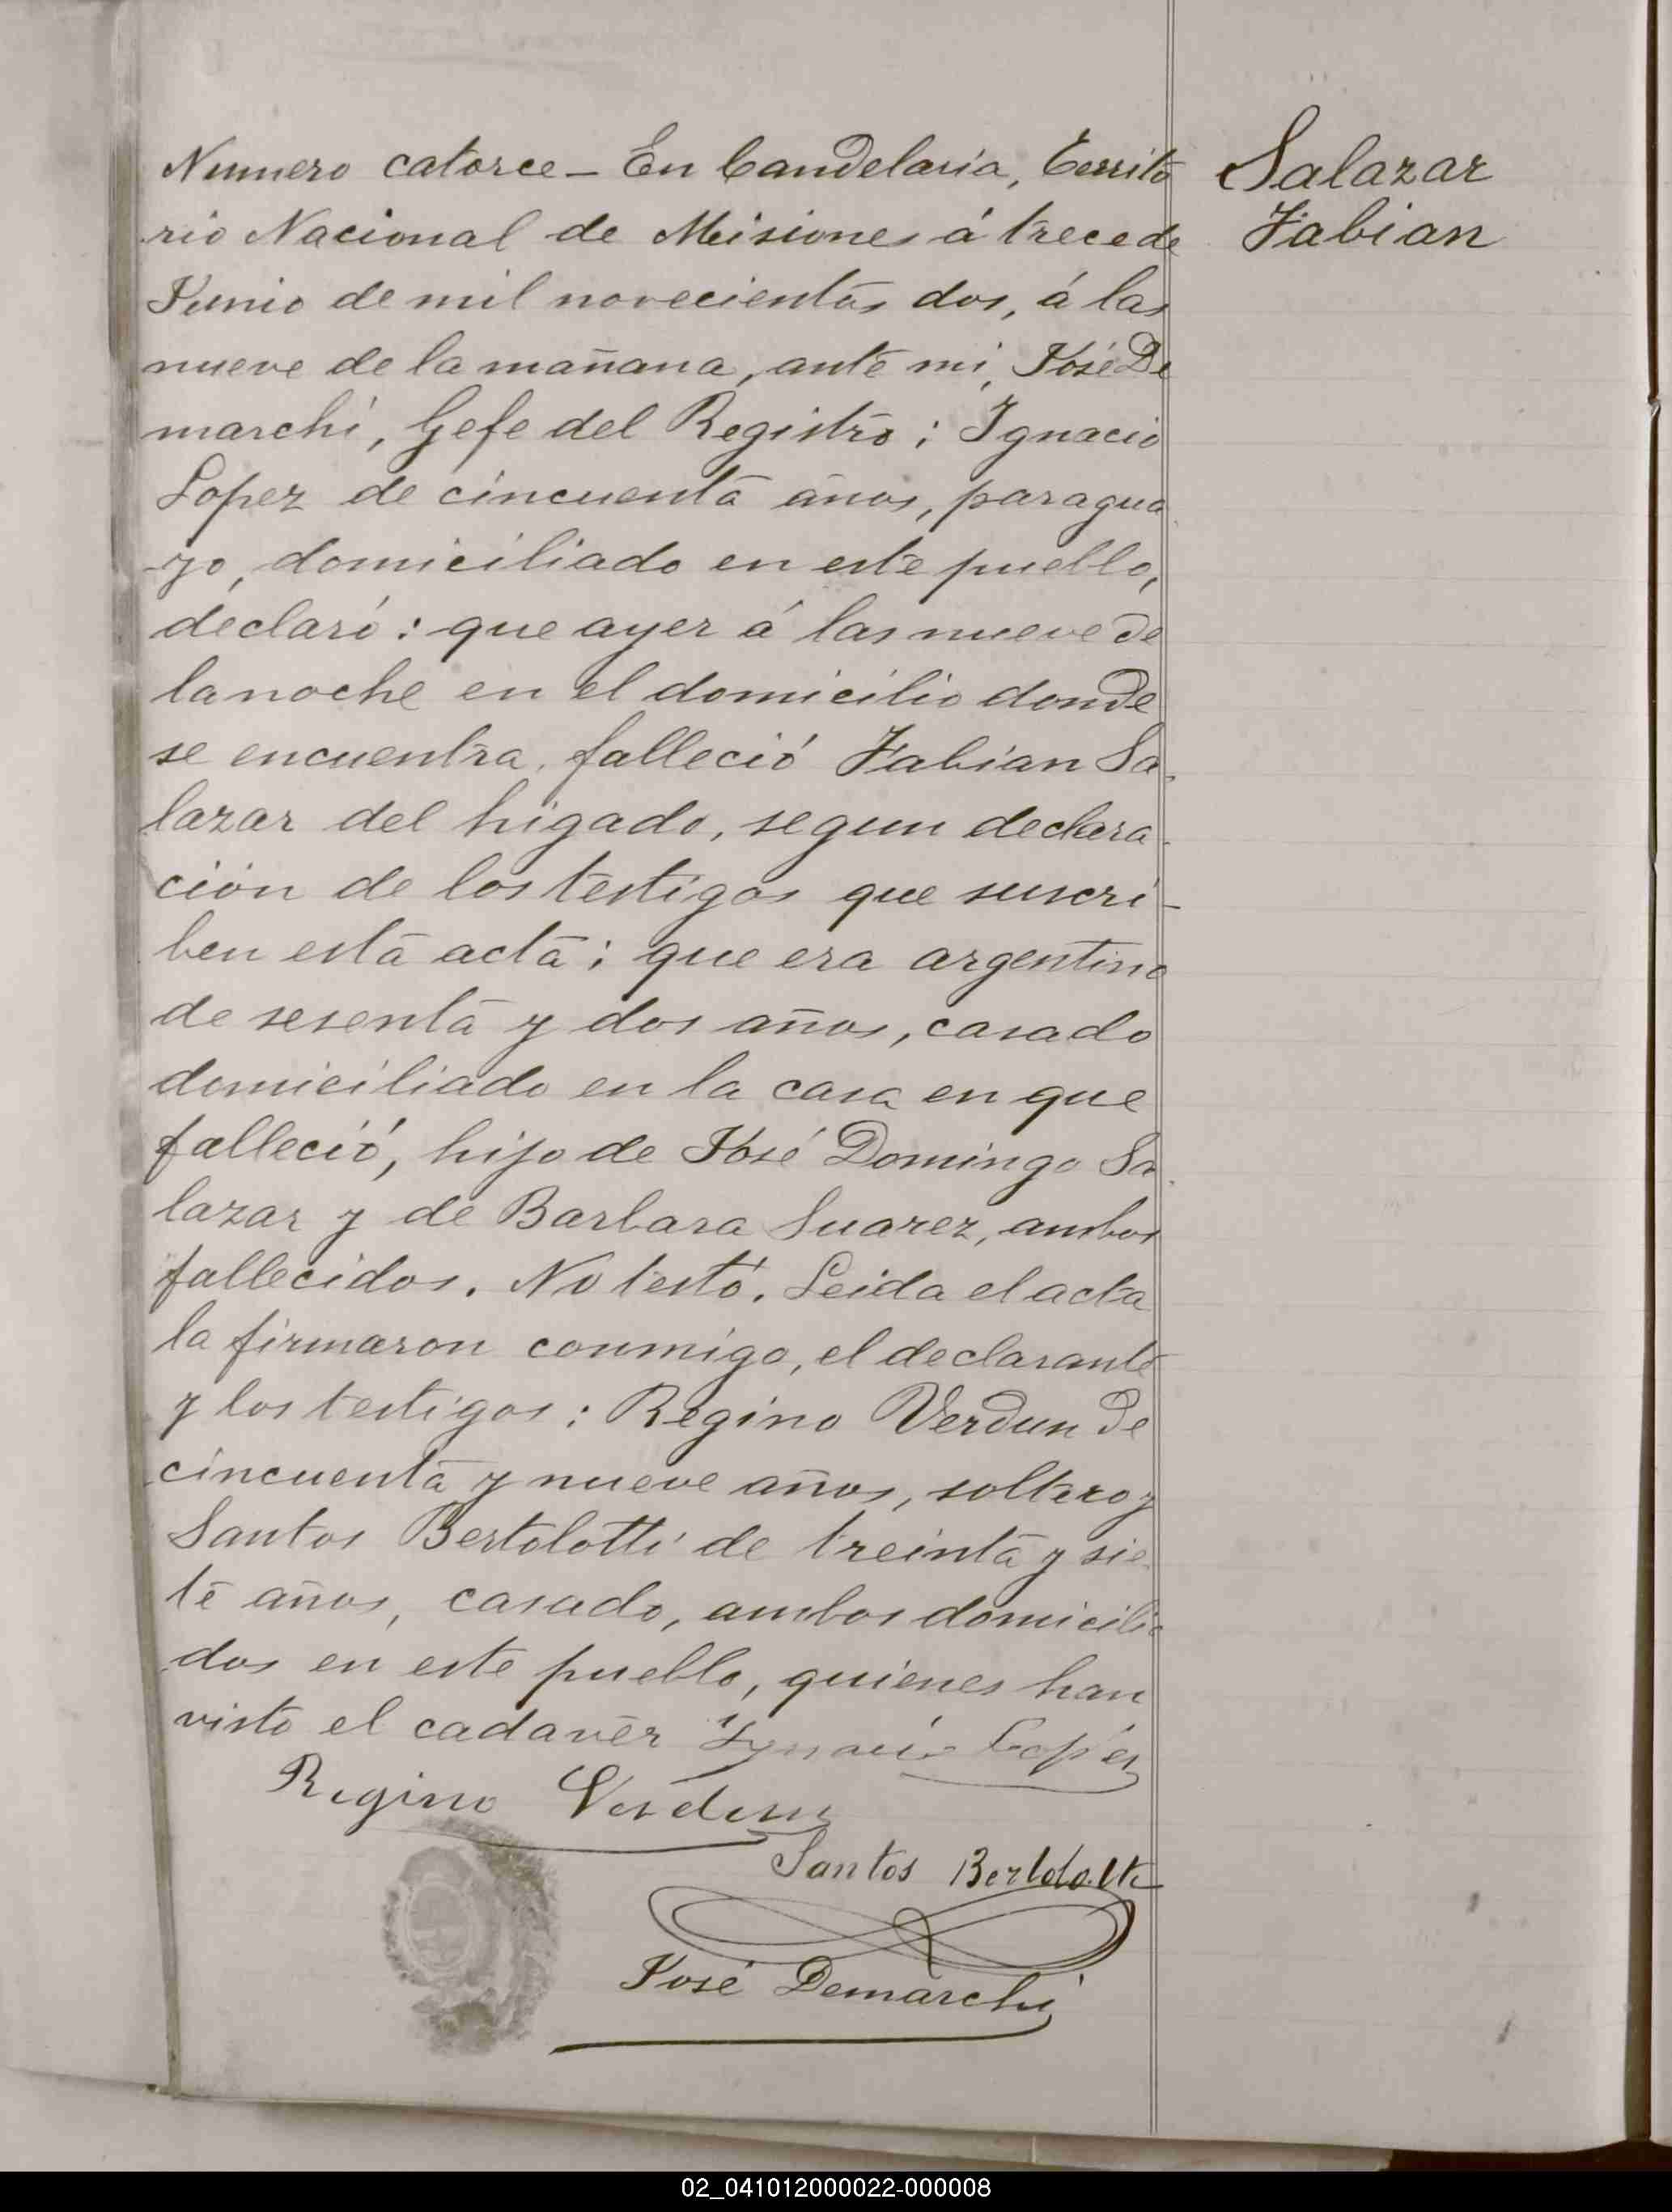 Numero catorce - En Candelaria, Territo
rio Nacional de Misiones á trece de
Junio de mil novecientos dos, á las
nueve de la mañana, ante mi, José De
marchi, Gefe del Registro; Ignacio
Lopez de cincuenta años, paragua
-yo, domiciliado en este pueblo,
declaró: que ayer á las nueve de
la noche en el domicilio donde
se encuentra, falleció Fabian Sa-
lazar del higado, segun declara-
ción de los testigos que suscri-
ben esta acta; que era argentino
de sesenta y dos años, casado
domiciliado en la casa en que
falleció, hijo de José Domingo Sa-
lazar y de Barbara Suarez, ambos
fallecidos. No testó. Leida el acta
la firmaron conmigo, el declarante
y los testigos: Regino Verdun de
cincuenta y nueve años, soltero y
Santos Bertolotti de treinta y sie
te años, casado, ambos domicilia
dos en este pueblo, quienes han
visto el cadaver Ygnacio Lopes
Regino Verdun
Santos Bertolotti
José Demarchi
Salazar
Fabian
02_041012000022-000008